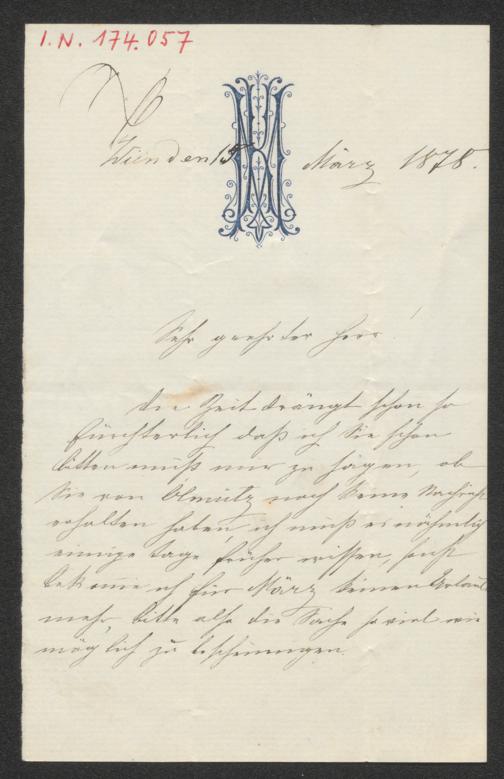 I.N. 174.057
Wien den 15 März 1878.
Sehr geehrter Herr!
Die Zeit drängt schon so
fürchterlich daß ich Sie schon
bitten muß mir zu sagen, ob
Sie von Olmütz noch keine Nachricht
erhalten haben, ich muß es nähmlich
einige Tage früher wissen, sonst
bekomme ich für März keinen Urlaub
mehr, bitte also die Sache so viel wie
möglich zu bescheinigen.